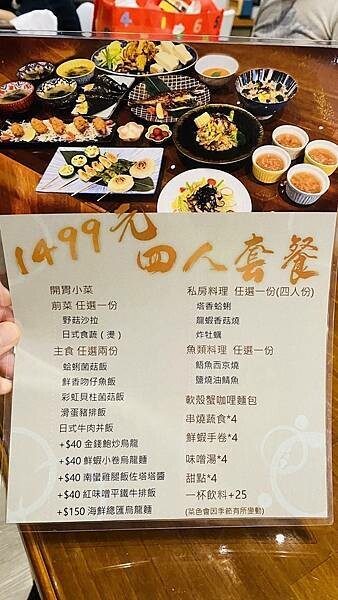 4165
1499元
四人套餐
開胃小菜
前菜 任選一份
野菇沙拉
日式食蔬(燙)
主食 任選兩份
蛤蜊菌菇飯
鮮香吻仔魚飯
彩虹貝柱菌菇飯
滑蛋豬排飯
日式牛肉丼飯
+$40 金錢鮑炒烏龍
+$40 鮮蝦小卷烏龍麵
+$40 南蠻雞腿飯佐塔塔醬
+$40 紅味噌平鐵牛排飯
+$150 海鮮總匯烏龍麵
私房料理 任選一份(四人份)
塔香蛤蜊
龍蝦香菇燒
炸牡蠣
魚類料理 任選一份
鯃魚西京燒
鹽燒油鯖魚
軟殼蟹咖哩麵包
串燒蔬食*4
鮮蝦手卷*4
味噌湯*4
甜點*4
一杯飲料+25
(菜色會因季節有所變動)